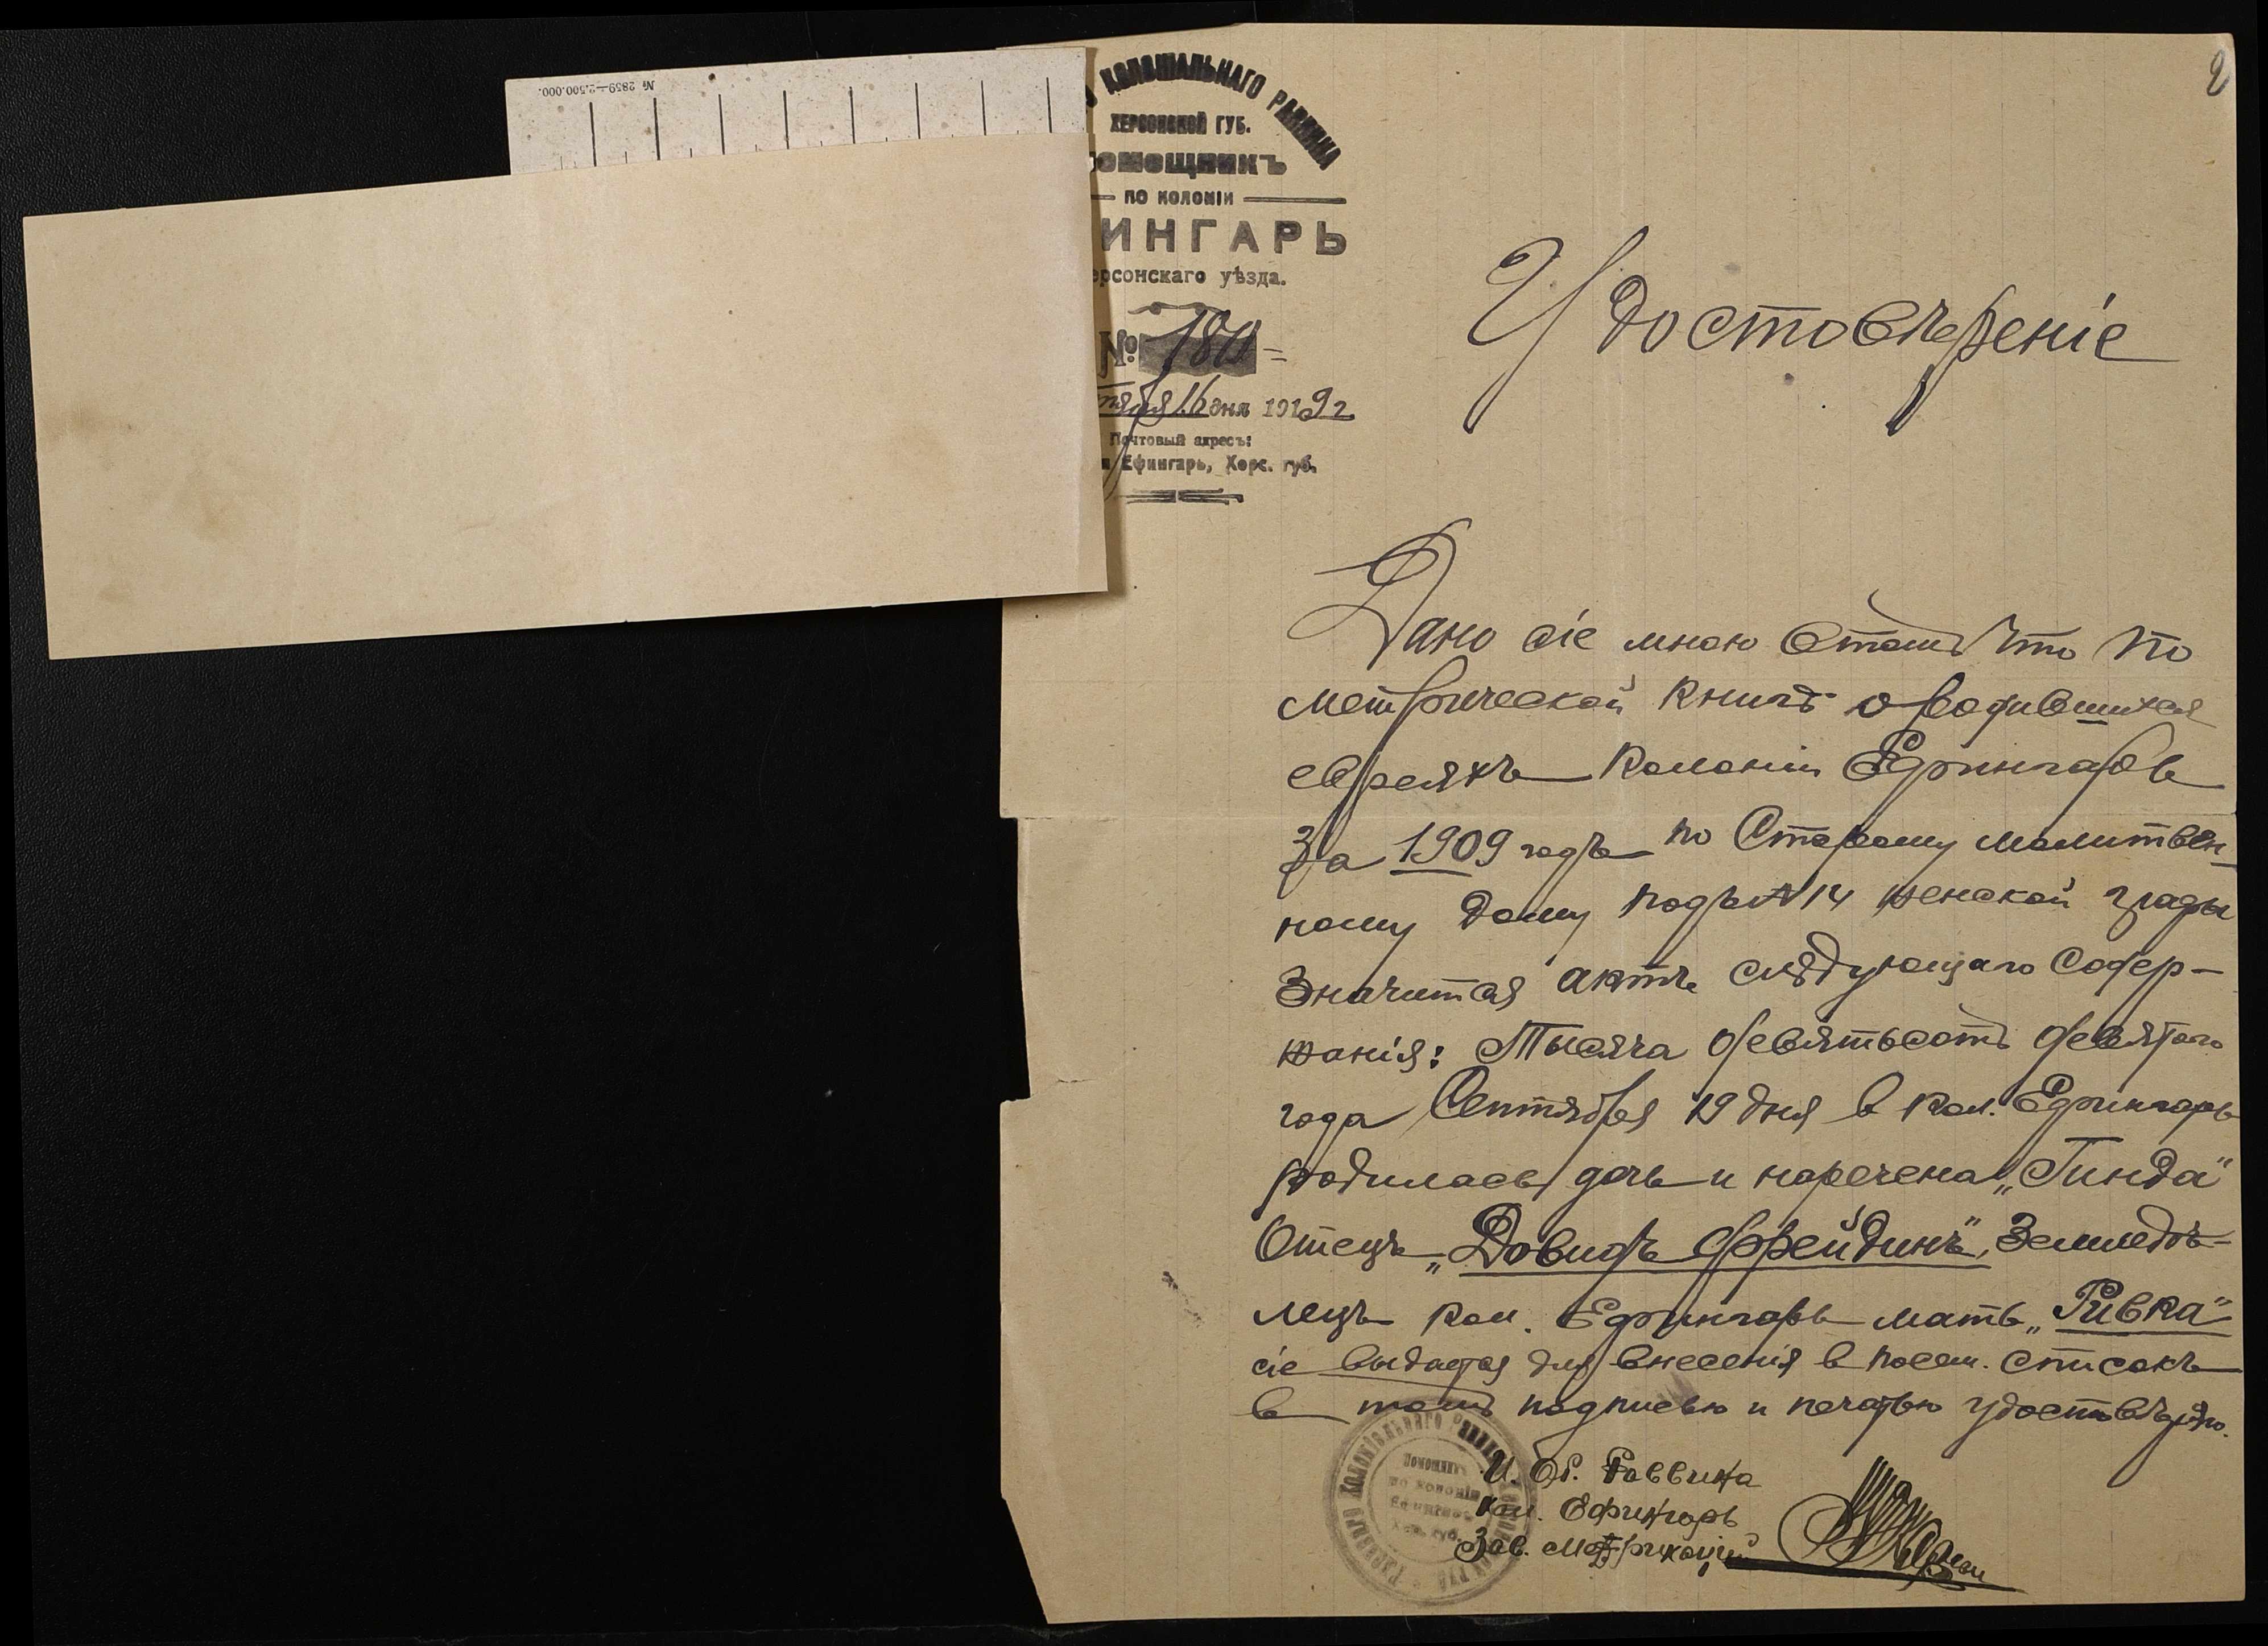 2
№ 2859—2.500.000.
КОЛОНІАЛЬНАГО РАВВИНА
ХЕРСОНСКОЙ ГУБ.
ОМОЩНИКЪ
ПО КОЛОНІИ
ИНГАРЬ
ерсонскаго уѣзда.
№ 180
тября 16 дня 1919 г.
Почтовый адресъ:
Ефингарь, Херс. губ.
Удостовѣреніе
Дано сіе мною в томъ что по
метрической книгѣ о родившихся
евреяхъ колоніи Ефингарь
за 1909 годъ по Старому молитвен-
ному дому подъ № 14 женской графы
значится актъ слѣдующаго содер-
жанія: Тысяча девятьсотъ девятаго
года Сентября 19 дня в кол. Ефингарь
родилась дочь и наречена „Гинда"
Отецъ „Довидъ Фрейдинъ", Земледѣ-
лецъ кол. Ефингарь мать „Ривка"
сіе выдается для внесенія в посем. списокъ
в томъ подписью и печатью удостовѣряю.
И. Об. Раввина
кол. Ефингарь
Зав. метрикаціей